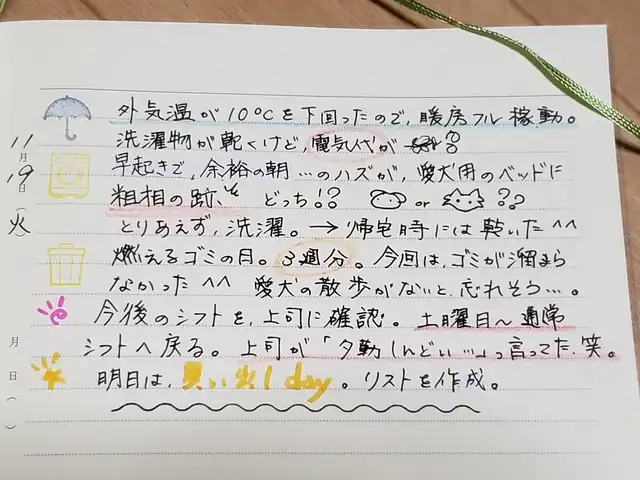 外気温が10℃を下回ったので、暖房フル稼動。
11
月
洗濯物が乾くけど、電気代が !?
19
日
早起きで、余裕の朝…のハズが、愛犬用のベッドに
粗相の跡、 どっち!? or ??
(火)
とりあえず、洗濯。→帰宅時には乾いた^^
燃えるゴミの日。3週分。今回は、ゴミが溜まら
なかった^^ 愛犬の散歩がないと、忘れそう…。
今後のシフトを、上司に確認。土曜日〜通常
月
シフトへ戻る。上司が「夕勤しんどい…」って言ってた。笑。
日
明日は、買い出しday。リストを作成。
( )